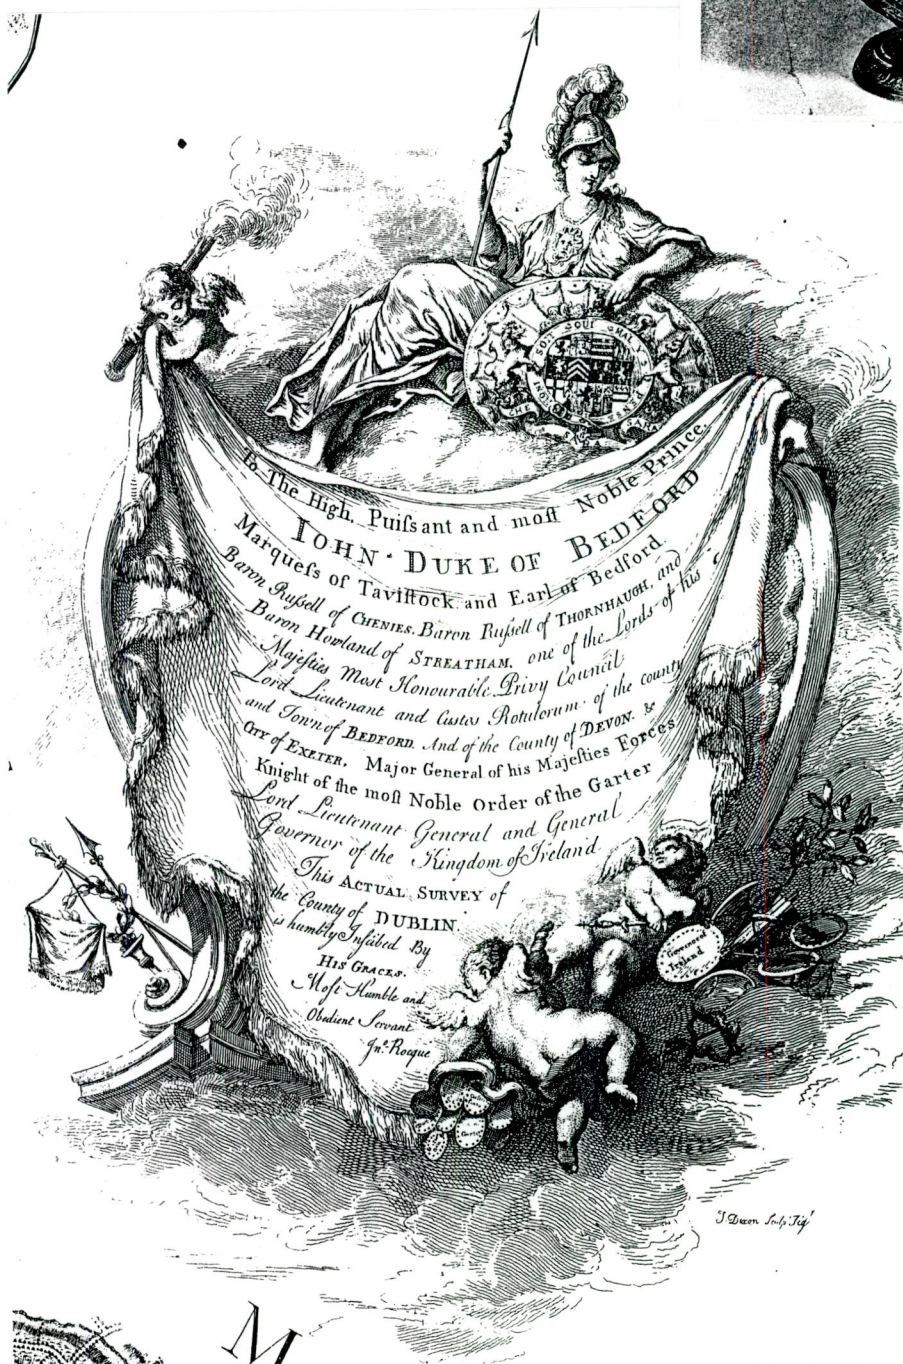 HONI SOIT QUI MAL Y PENSE
CHE SARA SARA
To The High, Puiſsant and moſt Noble Prince,
IOHN DUKE OF BEDFORD
Marqueſs of Taviſtock and Earl of Bedford.
Baron Ruſsell of CHENIES. Baron Ruſsell of THORNHAUGH, and
Baron Howland of STREATHAM, one of the Lords of his
Majeſties Most Honourable Privy Council
Lord Lieutenant and Custos Rotulorum of the county
and Town of BEDFORD. And of the County of DEVON. &
CITY of EXETER. Major General of his Majeſties Forces
Knight of the moſt Noble Order of the Garter
Lord Lieutenant General and General
Governor of the Kingdom of Ireland
This ACTUAL SURVEY of
the County of DUBLIN
is humbly Inſcribed By
HIS GRACES.
Moſt Humble and
Obedient Servant
Jno. Rocque
Ireland
J. Dixon Sculp.
M